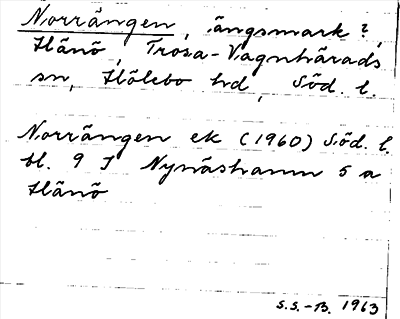 Norrängen, ängsmark?,
Hänö, Trosa-Vagnhärads
sn, Hölebo hd, Söd. l.
Norrängen ek (1960) Söd. l.
bl. 9 I Nynäshamn 5 a
Hänö
S.S.-B. 1963